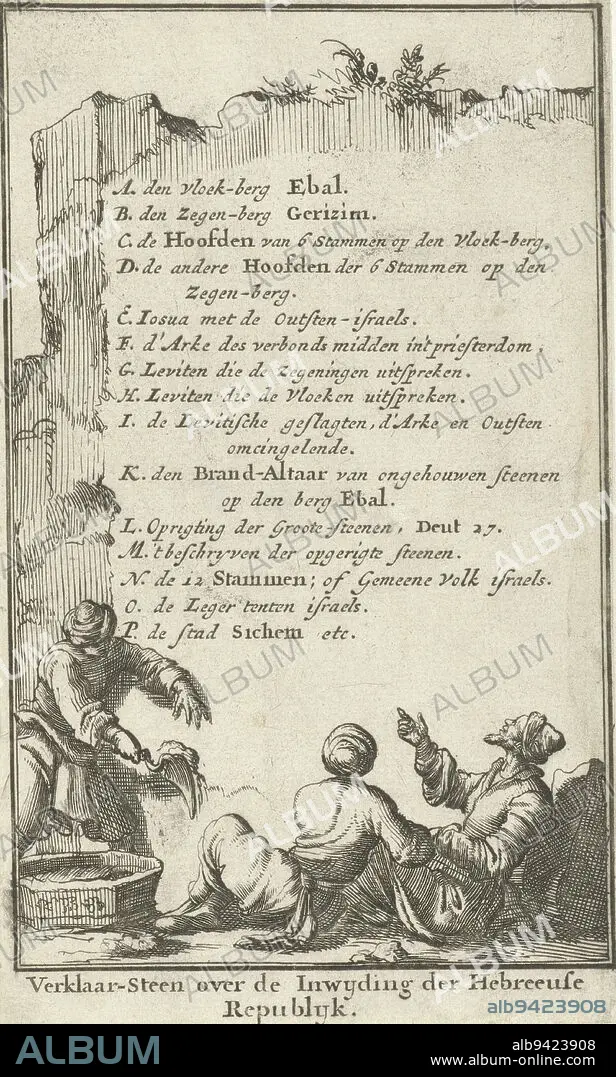 A. den vloek-berg Ebal.
B. den Zegen-berg Gerizim.
C. de Hoofden van 6 Stammen op den Vloek-berg.
D. de andere Hoofden der 6 Stammen op den
Zegen-berg.
E. Iosua met de Outsten-israels.
F. d'Arke des verbonds midden in't priesterdom.
G. Leviten die de Zegeningen uitspreken.
H. Leviten die de Vloeken uitspreken.
I. de Levitische geslagten, d'Arke en Outsten
omcingelende.
K. den Brand-Altaar van ongehouwen steenen
op den berg Ebal.
L. Oprigting der Groote steenen, Deut 27.
M. 't beschryven der opgerigte steenen.
N. de 12 Stammen; of Gemeene Volk israels.
O. de Leger tenten israels.
P. de stad Sichem etc.
Verklaar-Steen over de Inwyding der Hebreeuse
Republyk.
alb9423908
ALBUM
alb9423908
www.album-online.com